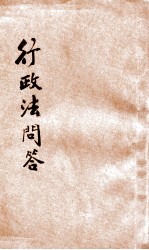 行政法問答